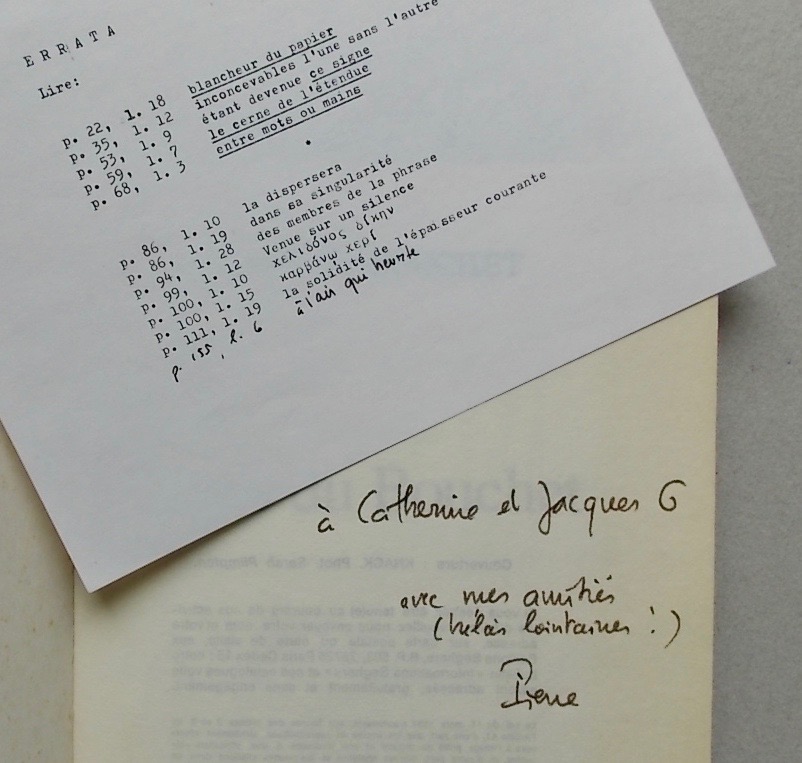 ERRATA
Lire:
p. 22, l. 18 blancheur du papier
p. 35, l. 12 inconcevables l'une sans l'autre
p. 53, l. 9 étant devenue ce signe
p. 59, l. 7 le cerne de l'étendue
p. 68, l. 3 entre mots ou mains
.
p. 86, l. 10 la dispersera
p. 86, l. 19 dans sa singularité
p. 94, l. 28 des membres de la phrase
p. 99, l. 12 Venue sur un silence
p. 100, l. 10 χελιδόνος δίκην
p. 100, l. 15 καρβάνῳ χερί
p. 111, l. 19 la solidité de l'épaisseur courante
p. 155, l. 6 à l'air qui heurte
à Catherine et Jacques G
avec mes amitiés
(hélas lointaines !)
Pierre